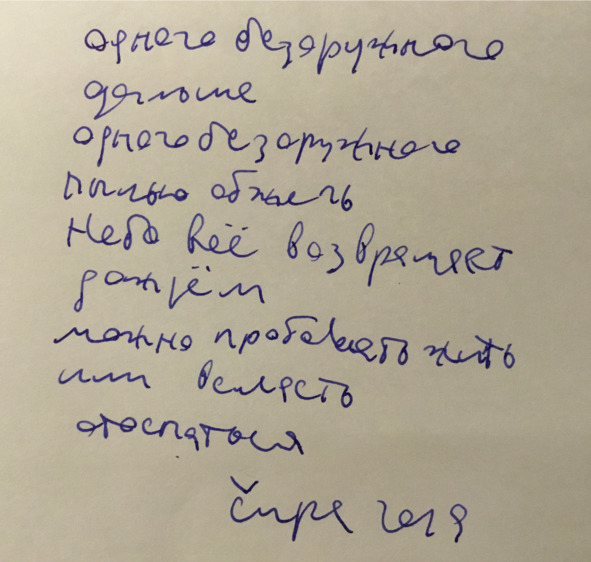 одного безоружного
дальше
одного безоружного
пылью обжечь
Небо всё возвращает
дождём
можно пробовать жить
или всласть
отоспаться